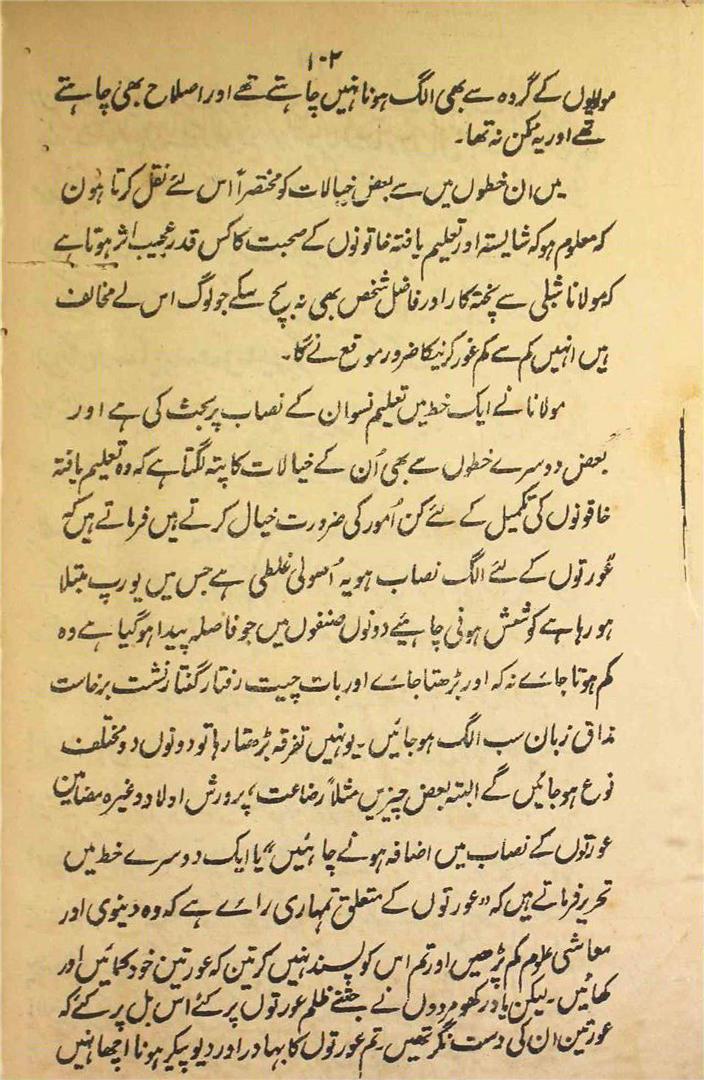 ۱۰۲
مولویوں کے گروہ سے بھی الگ ہونا نہیں چاہتے تھے اور اصلاح بھی چاہتے
تھے اور یہ ممکن نہ تھا۔
میں ان خطوں میں سے بعض خیالات کو مختصراً اس لئے نقل کرتا ہون
کہ معلوم ہو کہ شایستہ اور تعلیم یافتہ خاتونوں کے صحبت کا کس قدر عجیب اثر ہوتا ہے
کہ مولانا شبلی سے پختہ کار اور فاضل شخص بھی نہ بچ سکے جو لوگ اس کے مخالف
ہیں انہیں کم سے کم غور کرنیکا ضرور موقع ملے گا۔
مولانا نے ایک خط میں تعلیم نسوان کے نصاب پر بحث کی ہے اور
بعض دوسرے خطوں سے بھی اُن کے خیالات کا پتہ لگتا ہے کہ وہ تعلیم یافتہ
خاتونوں کی تکمیل کے لئے کن اُمور کی ضرورت خیال کرتے ہیں فرماتے ہیں کہ
عورتوں کے لئے الگ نصاب ہو یہ اُصولی غلطی ہے جس میں یورپ مبتلا
ہو رہا ہے کوشش ہونی چاہئیے دونوں صنفوں میں جو فاصلہ پیدا ہوگیا ہے وہ
کم ہوتا جاے نہ کہ اور بڑھتا جاے اور بات چیت رفتار گفتار نشست برخاست
مذاق زبان سب الگ ہوجائیں۔ یونہیں تفرقہ بڑھتا رہا تو دونوں دو مختلف
نوع ہوجائیں گے البتہ بعض چیزیں مثلاً رضاعت، پرورش اولاد وغیرہ مضامین
عورتوں کے نصاب میں اضافہ ہونے چاہئیں" یا ایک دوسرے خط میں
تحریر فرماتے ہیں کہ "عورتوں کے متعلق تمہاری راے ہے کہ وہ دینوی اور
معاشی علوم کم پڑھیں اور تم اس کو پسند نہیں کرتین کہ عورتین خود کمائیں اور
کھائیں۔ لیکن یاد رکھو مردوں نے جتنے ظلم عورتوں پر کئے اس بل پر کئے کہ
عورتین ان کی دست نگر تھیں۔ تم عورتوں کا بہادر اور دیو پیکر ہونا اچھا نہیں